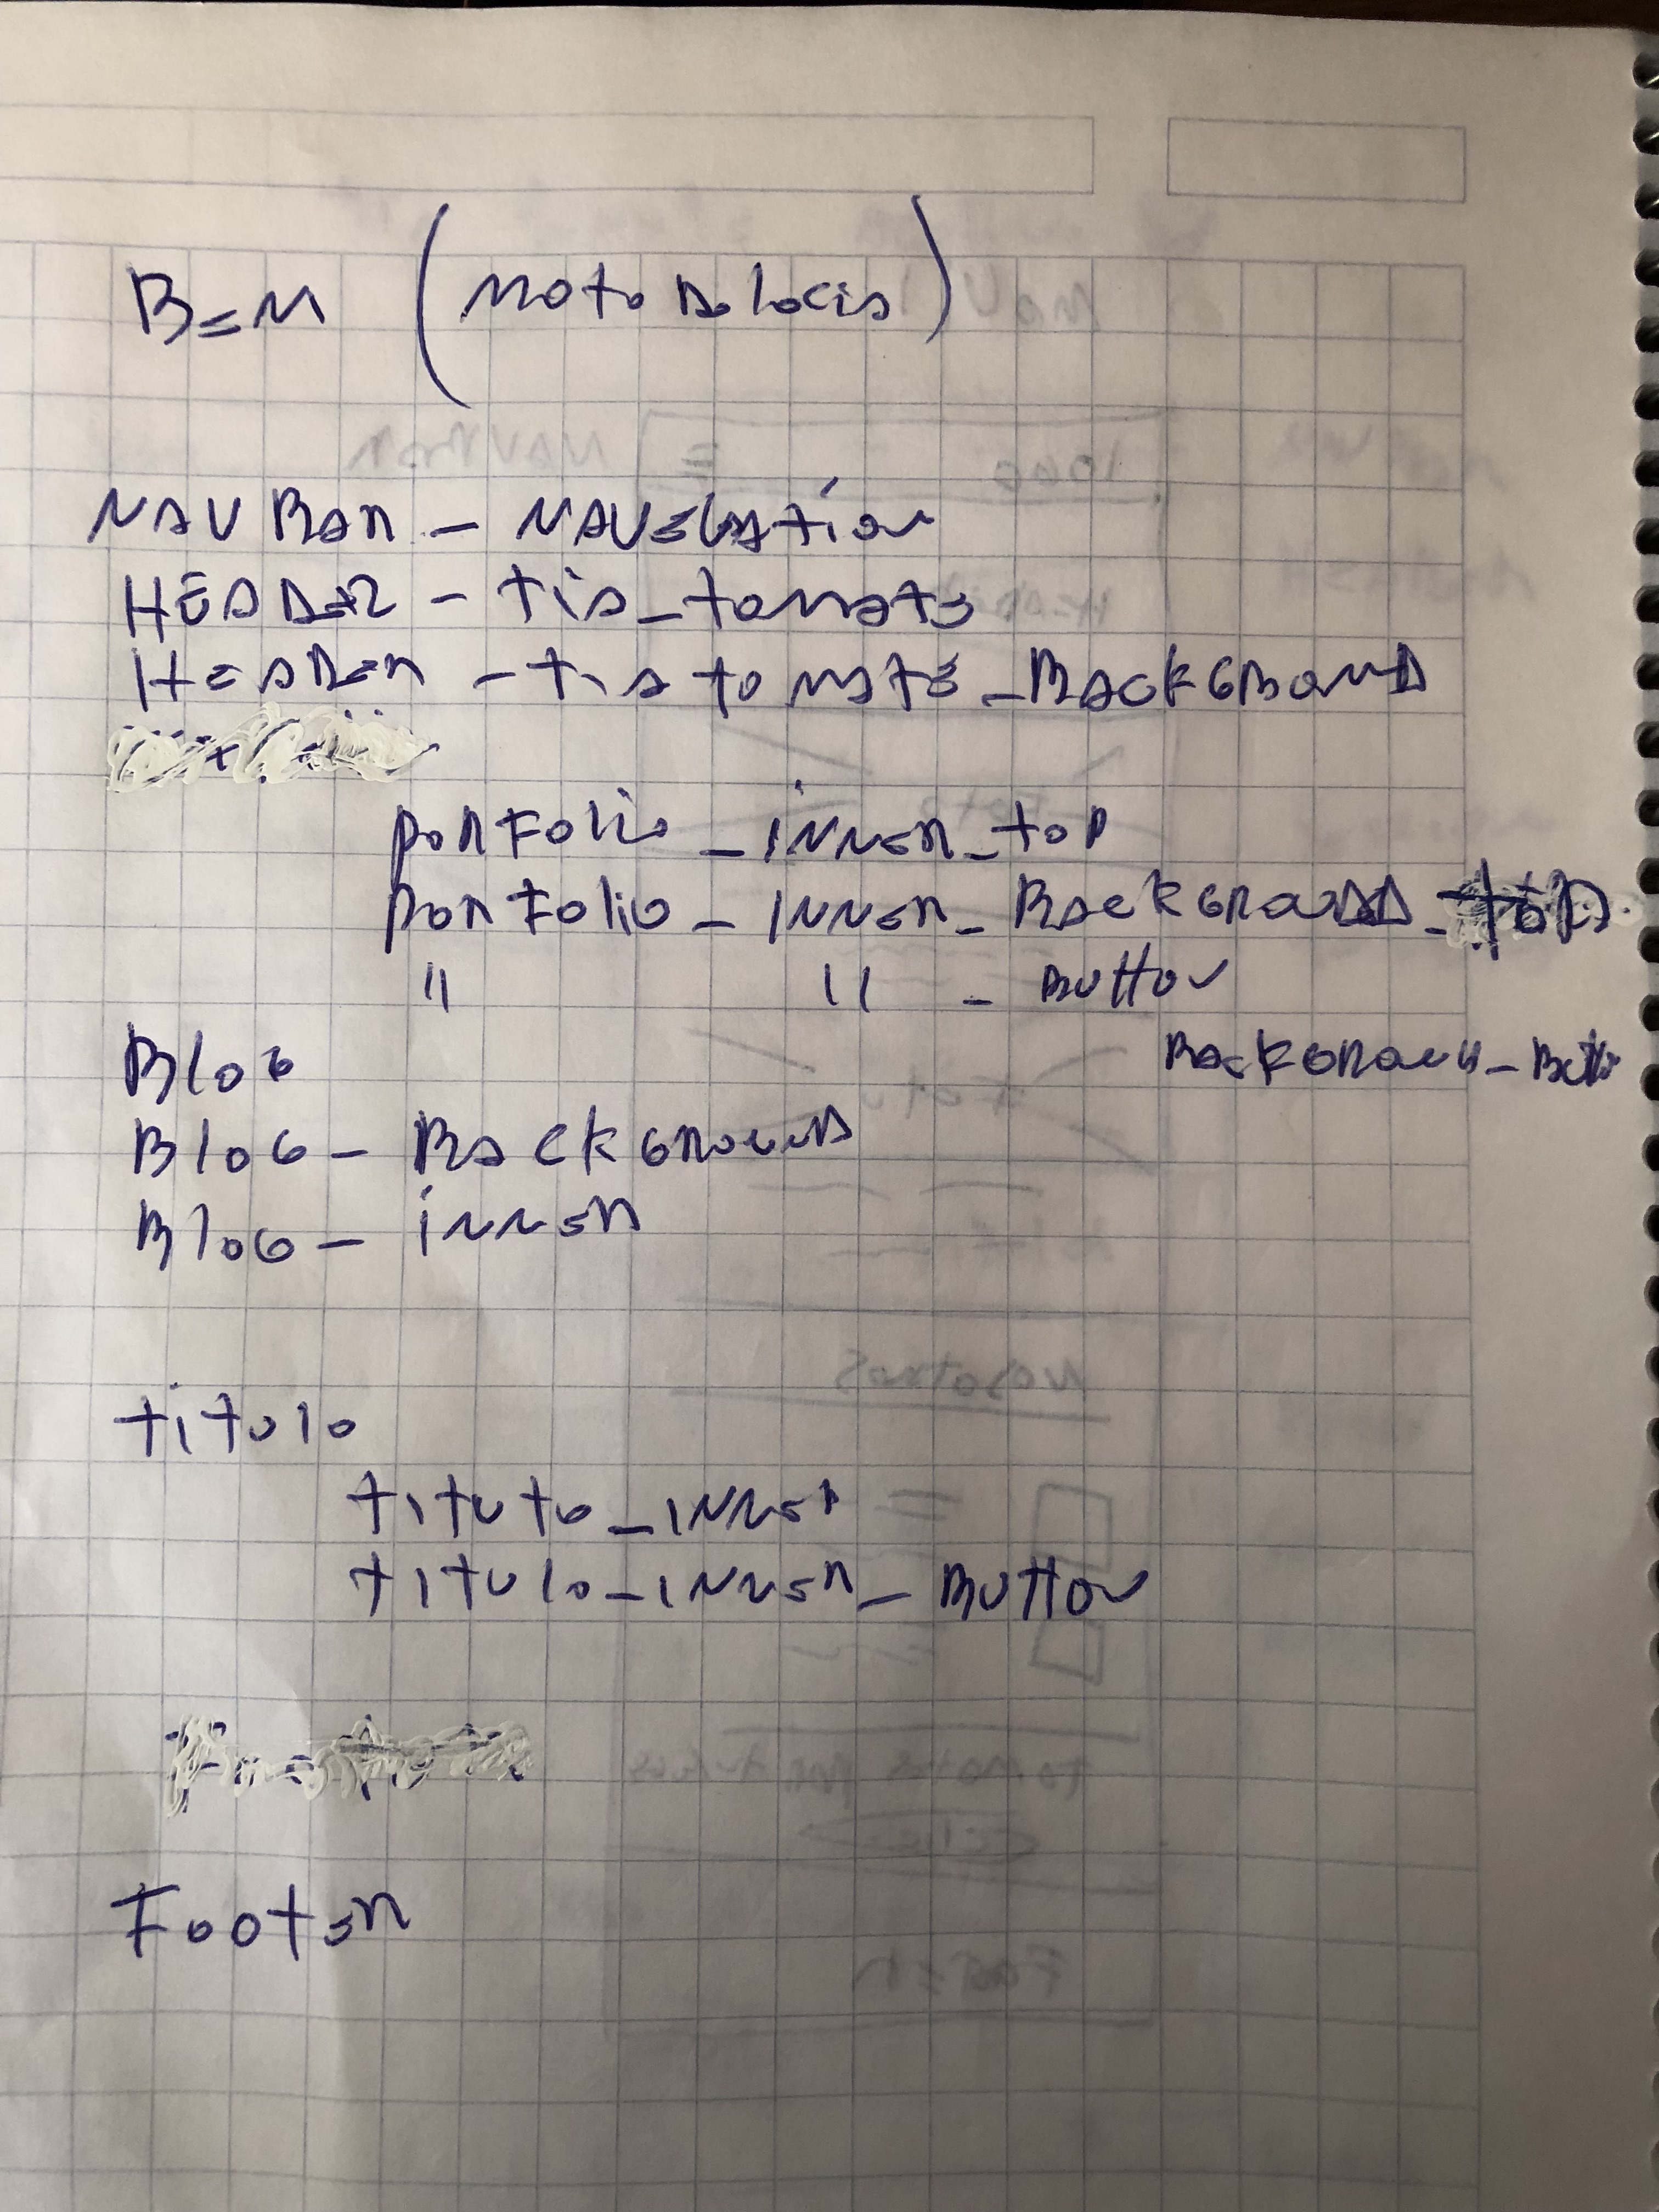 BEM (Motodolocia)
NAVBAR - NAVEGATION
HEADER - tia_tomate
HEADER - tia tomate_BACKGROUND
PORTFOLIO_INNER_top
PORTFOLIO_INNER_BACKGROUND_top
" " - BUTTON
BACKGROUND_Button
BLOG
BLOG - BACKGROUND
BLOG - INNER
titulo
tituto_INNER
titulo_INNER_BUTTON
FOOTER